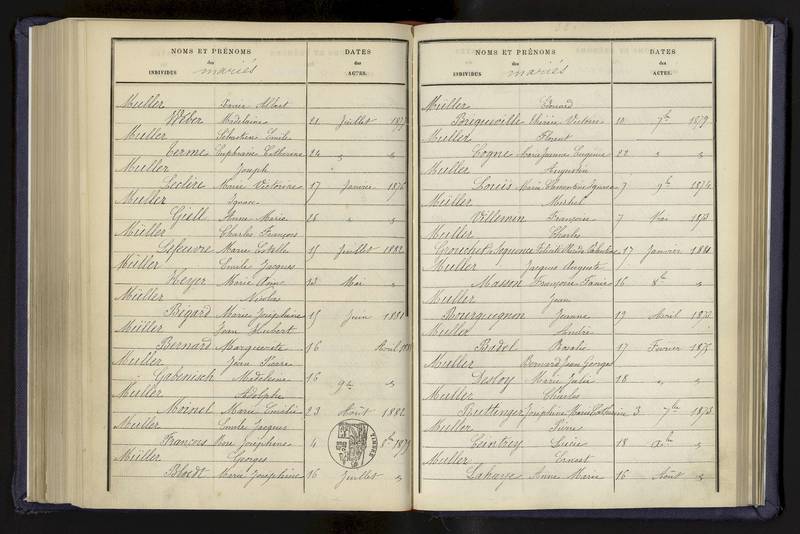 NOMS ET PRÉNOMS DATES
des des
INDIVIDUS mariés ACTES.
Muller Xavier Albert
Weber Madelaine 21 Juillet
Muller Sébastien Emile
Terme Euphrasie Catherine 24 " "
Muller Joseph
Leclère Marie Victoire 17 Janvier 1876
Muller Ignace
Giell Anne Marie 28 " "
Müller Charles François
Lefeuvre Marie Estelle 15 Juillet 1882
Müller Emile Jacques
Heyer Marie Anne 13 Mai "
Müller Nicolas
Bégard Marie Joséphine 15 Juin 1881
Müller Jean Hubert
Bernard Marguerite 16 Avril
Muller Jean Pierre
Gabenisch Madeleine 16 9bre "
Muller Adolphe
Moinel Marie Emélie 23 Août 1882
Muller Emile Jacques
François Rose Joséphine 4 8bre 1879
Müller Georges
Bloedt Marie Joséphine 16 Juillet "
NOMS ET PRÉNOMS DATES
des des
INDIVIDUS mariés ACTES.
Müller Edouard
Briqueville Victoire 10 7bre 1879
Muller Florent
Cogne Marie Jeanne Eugénie 22 " "
Muller Augustin
Louis Marie Clémentine 7 9bre 1874
Müller Michel
Villemin Françoise 7 Mai 1873
Muller Charles
17 Janvier 1881
Muller Jacques Auguste
Masson Françoise Fanie 16 8bre "
Muller Jean
Bourguignon Jeanne 19 Avril 1872
Muller André
Badel Rosalie 17 Février 1875
Muller Bernard Jean Georges
Desloy Marie Julie 18 " "
Muller Charles
Ruttinger Joséphine Marie Catherine 3 7bre 1873
Muller Pierre
Ceintrey Lucie 18 "
Muller Ernest
Lahaye Anne Marie 16 Août "